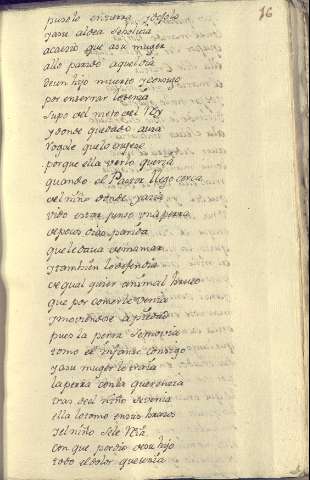 16
pusolo en tierra y dexolo
y a su aldea se bolvia
acaeció que a su muger
allo parida aquel dia
de un hijo muerto y consigo
por enterrar lo tenia
supo del nieto del Rey
y donde quedado avia
rogole que lo truxese
porque ella verlo queria
quando el Pastor llego cerca
del niño donde yazia
vido estar junto una perra
de pocos dias parida
que le dava de mamar
y tambien lo defendia
de qual quier animal bruto
que por comerle venia
y moviendose a piedad
pues la perra se movia
tomo el infante consigo
y a su muger le traia
la perra con la querencia
tras del niño se venia
ella lo tomo en sus brazos
y el niño se le reia
con que perdio de su hijo
todo el dolor que tenia